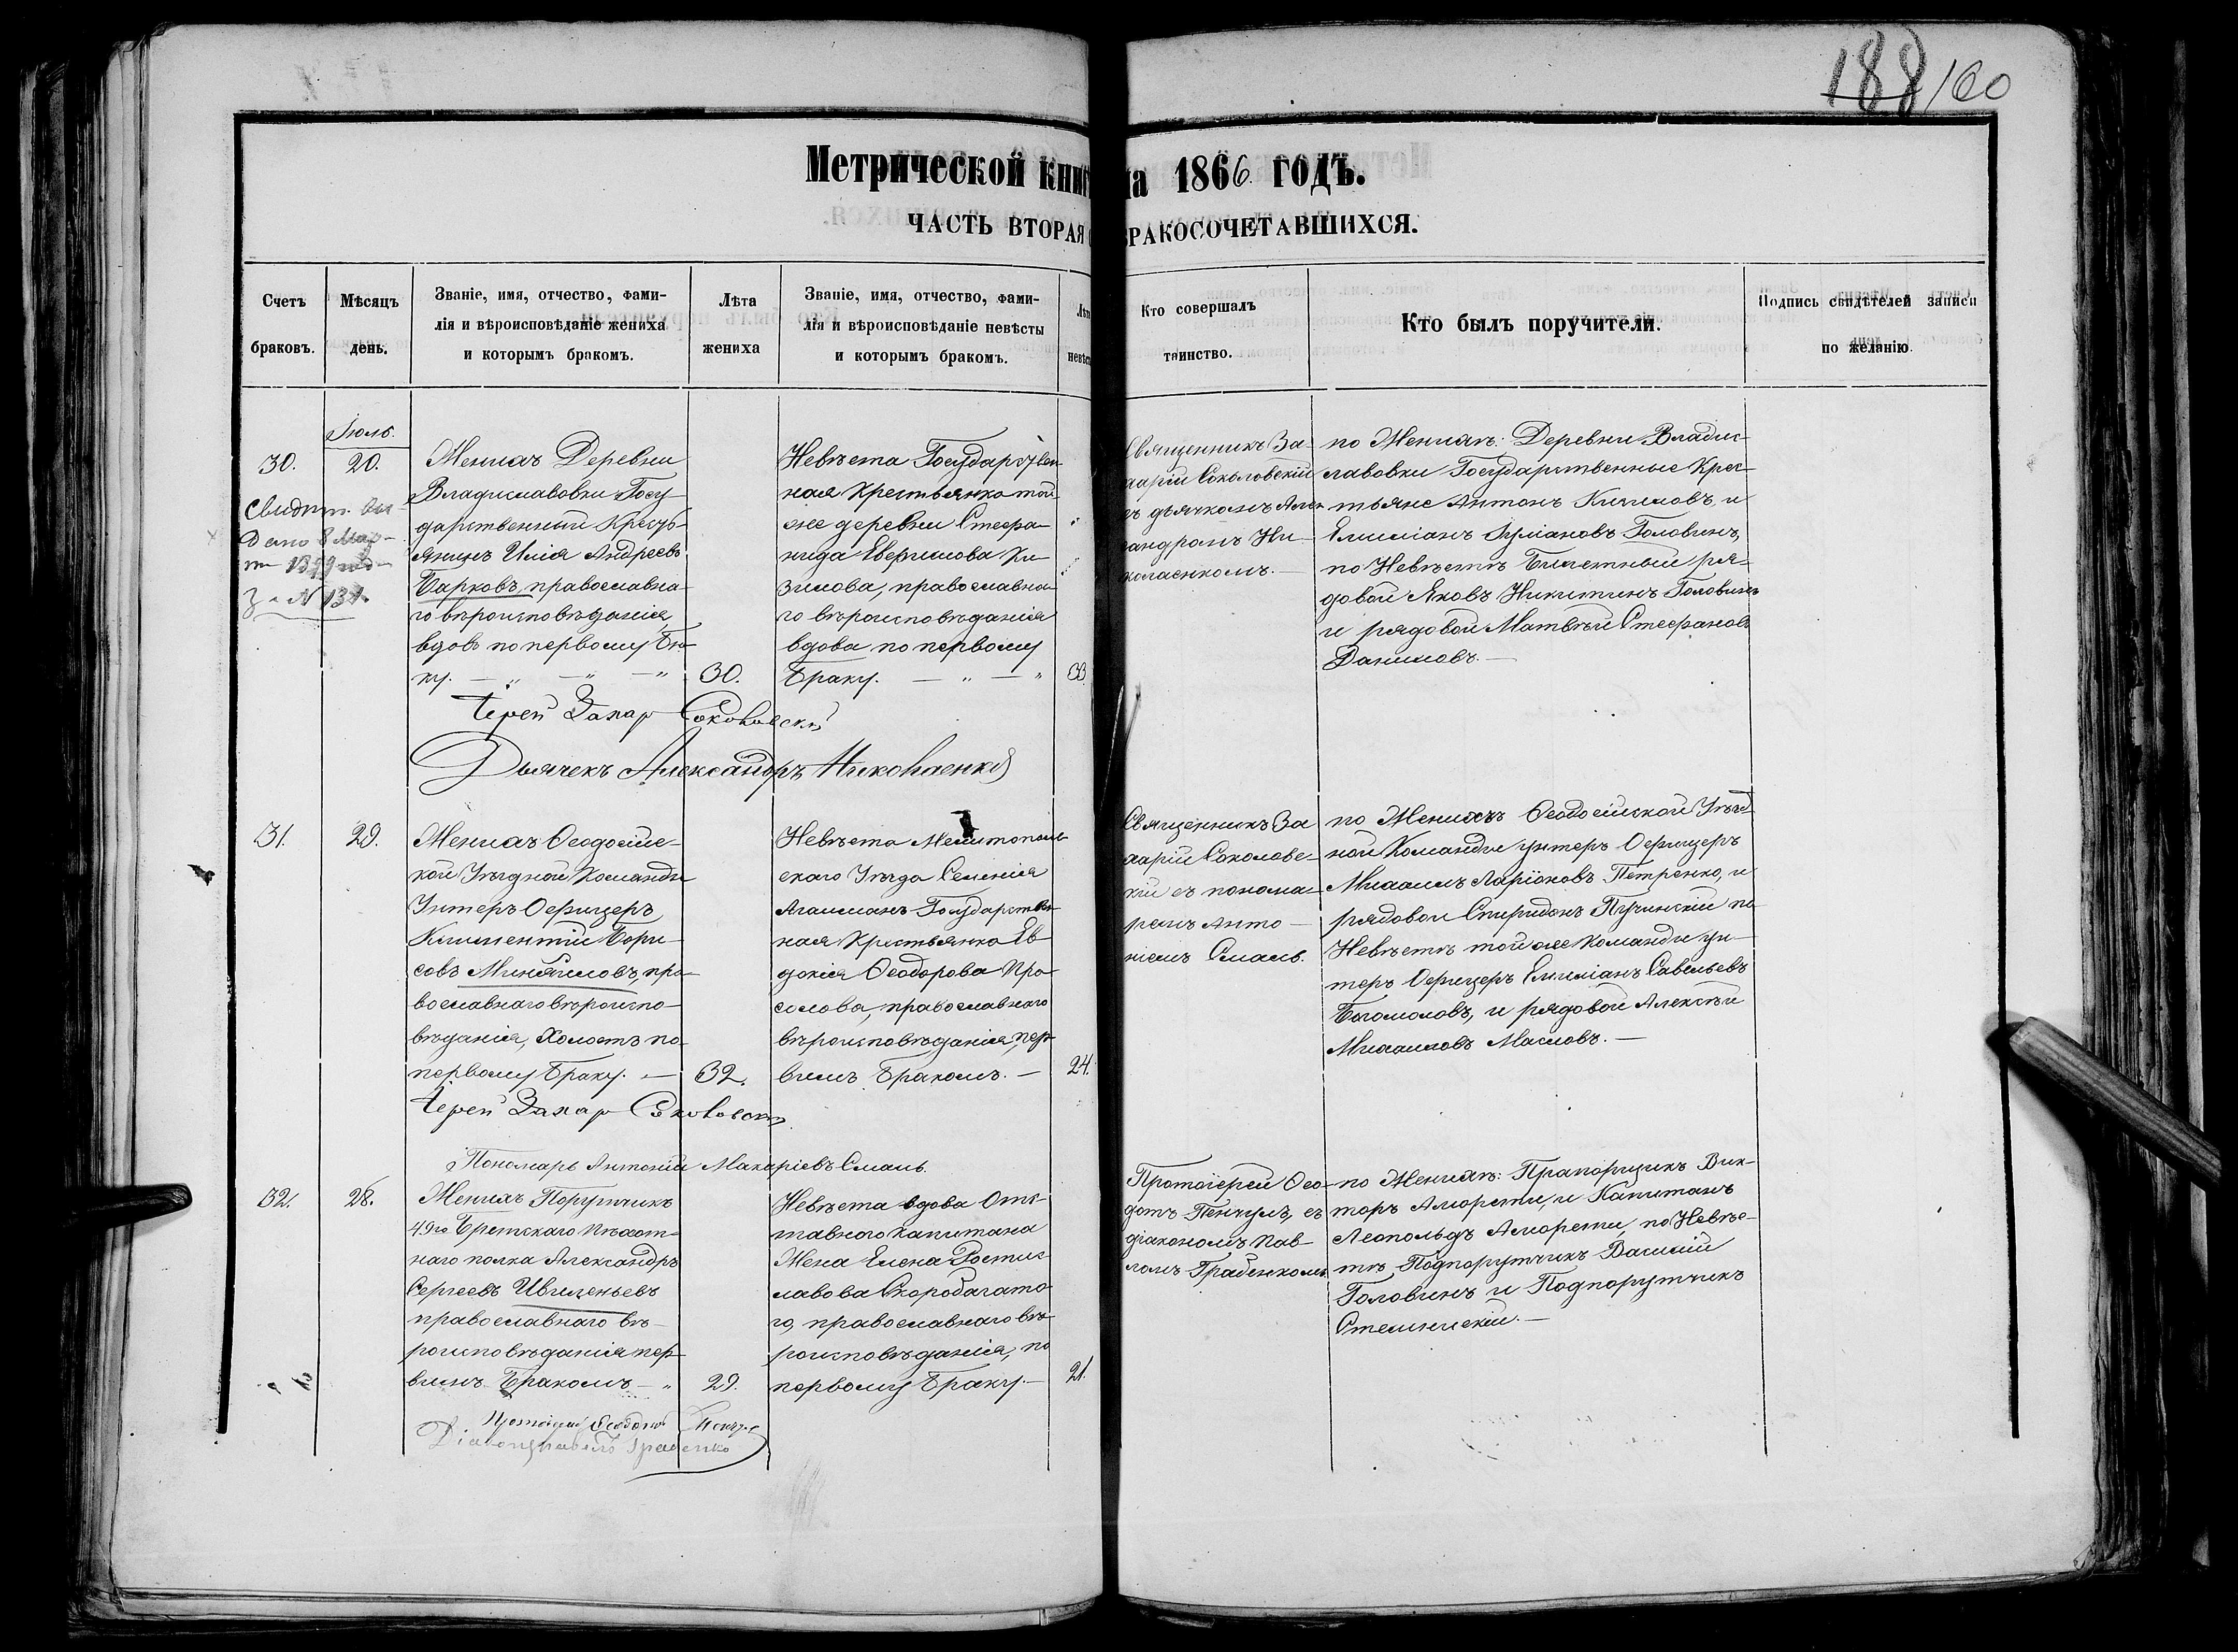 188/160
Метрической книги на 1866 годъ.
ЧАСТЬ ВТОРАЯ О БРАКОСОЧЕТАВШИХСЯ.
Счетъ браковъ.
Мѣсяцъ день.
Званіе, имя, отчество, фами-
лія и вѣроисповѣданіе жениха
и которымъ бракомъ.
Лѣта
жениха
Званіе, имя, отчество, фами-
лія и вѣроисповѣданіе невѣсты
и которымъ бракомъ.
Кто совершалъ
таинство.
Кто былъ поручители.
Подпись свидѣтелей записи
по желанію.
Іюль.
30.
20.
Свидѣт. вы-
дано 8 Мар-
та 1899 года
За № 134.
Женихъ Деревни
Владиславовки Госу-
дарственный Кресть-
янинъ Илія Андреевъ
Барковъ, православна-
го вѣроисповѣданія,
вдовъ по первому Бра-
ку.
30.
Невѣста Государствен-
ная Крестьянка той
же деревни Стефа-
нида Ефримова Ки-
зилова, православна-
го вѣроисповѣданія
вдова по первому
Браку.
33.
Священникъ За-
харій Соколовскій
съ дьячкомъ Алек-
сандромъ Ни-
колаенкомъ.
по Женихъ: Деревни Владис-
лавовки Государственные Крес-
тьяне Антонъ Кичиловъ, и
Емиліанъ Лукіановъ Головинъ,
по Невѣстѣ Билетный ря-
довой Яковъ Никитинъ Головинъ
и рядовой Матвѣй Стефановъ
Даниловъ.
Іерей Захар Соколовскій
Дьячекъ Александръ Николаенко
31.
29.
Женихъ Ѳеодосійс-
кой Уѣздной Команды
Унтеръ Офицеръ
Климентій Бори-
совъ Миняиловъ, пра-
вославнаго вѣроиспо-
вѣданія, Холостъ по
первому Браку.
32.
Невѣста Мелитополь-
скаго Уѣзда Селенія
Агаиманъ Государствен-
ная Крестьянка Ев-
докія Ѳеодорова Про-
солова, православнаго
вѣроисповѣданія, пер-
вымъ Бракомъ.
24.
Священникъ За-
харій Соколовс-
кій съ понома-
ремъ Анто-
ніемъ Смаль.
по Женихъ Ѳеодосійской Уѣзд-
ной Команды унтеръ Офицеръ
Михаилъ Ларіоновъ Петренко, и
рядовой Спиридонъ Пучинскій по
Невѣстѣ той же Команды ун-
теръ Офицеръ Емиліанъ Савельевъ
Богомоловъ, и рядовой Алексѣй
Михаиловъ Масловъ.
Іерей Захар Соколовскій
Пономарь Антоній Макаріевъ Смаль.
32.
28.
Женихъ Порутчикъ
49го Брестскаго Пѣхот-
наго полка Александръ
Сергеевъ Ивиленьевъ
православнаго вѣ-
роисповѣданія пер-
вымъ Бракомъ
29.
Невѣста вдова Отс-
тавного Капитана
Жена Елена Ростис-
лавова Скоробагато-
го, православнаго вѣ-
роисповѣданія, по
первому Браку.
21.
Протоіерей Ѳео-
дотъ Пенчулъ, съ
діакономъ Пав-
ломъ Граденкомъ.
по Женихъ: Прапорщикъ Вик-
торъ Аморети, и Капитанъ
Леопольдъ Аморети, по Невѣс-
тѣ Подпорутчикъ Василій
Головинъ и Подпорутчикъ
Протоіерей Ѳеодотъ Пенчулъ
Діаконъ Павелъ Граденко